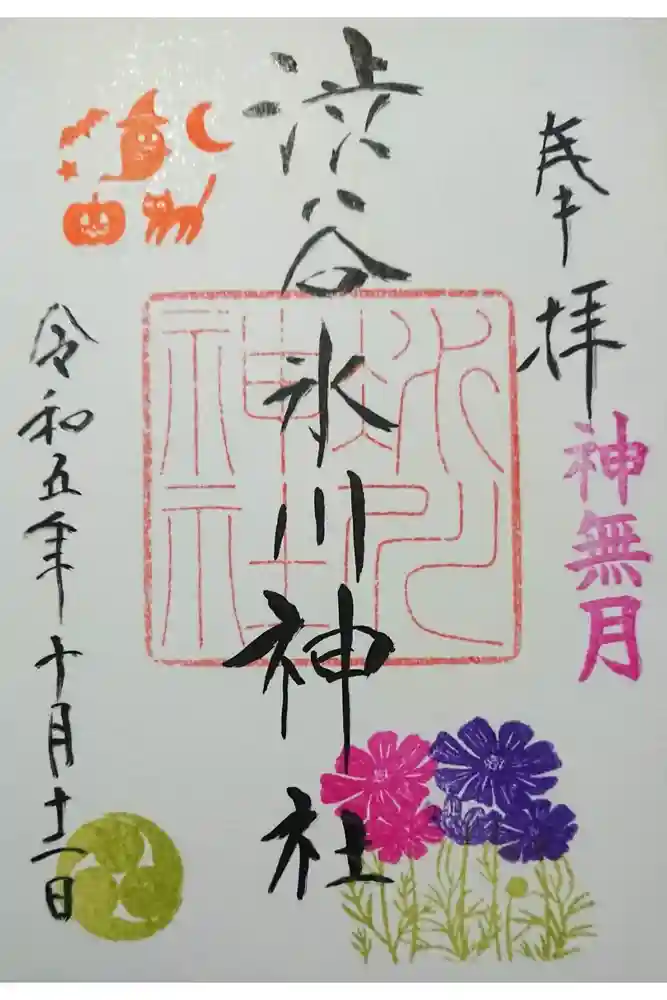 奉拝
神無月
渋谷氷川神社
氷川神社
令和五年十月十二日